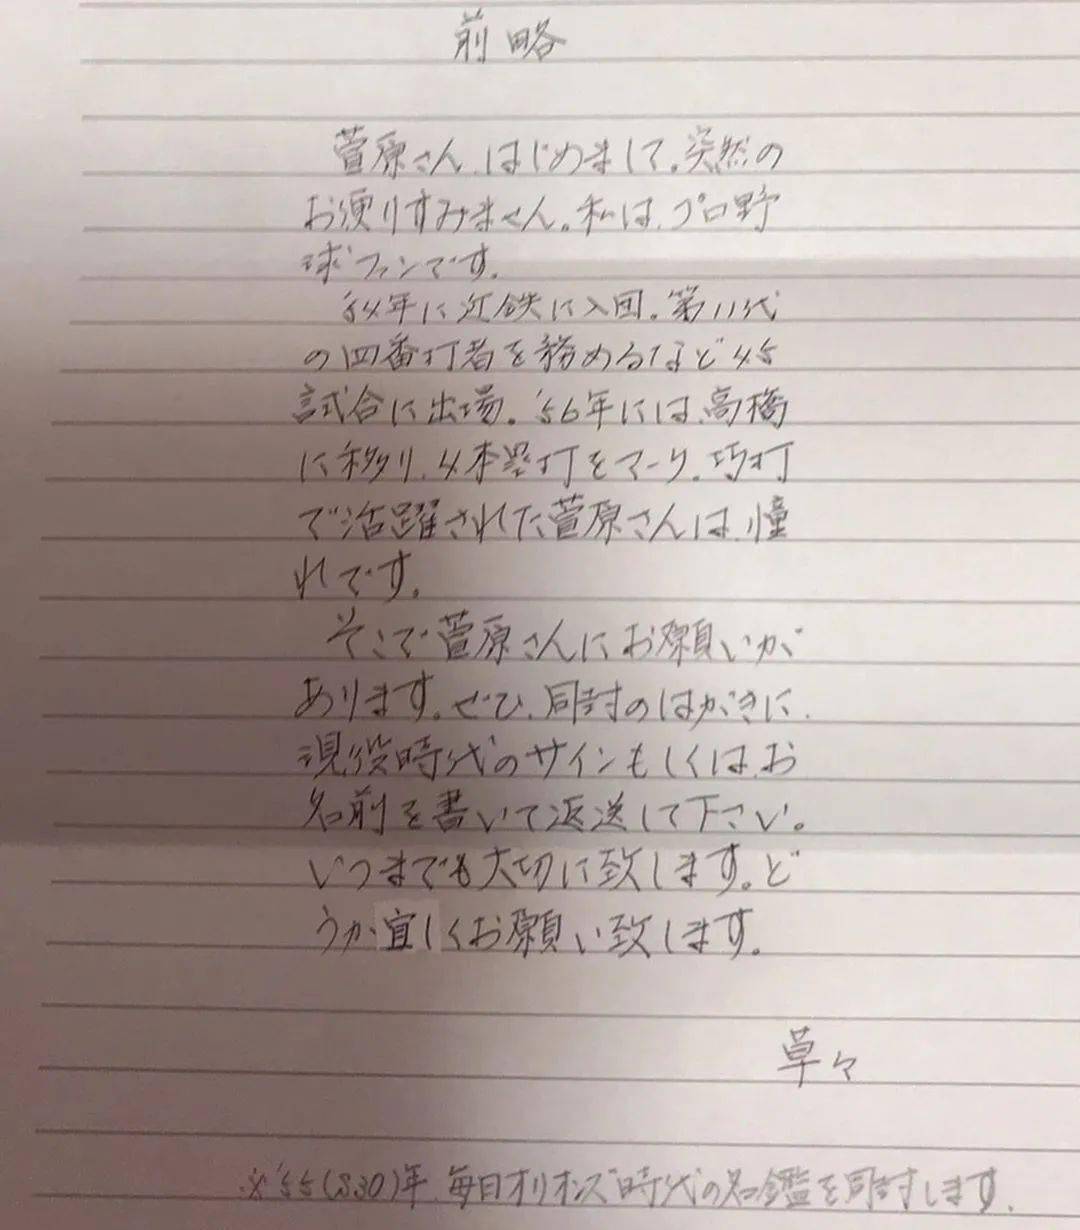 前略
菅原さん、はじめまして。突然の
お便りすみません。私は、プロ野
球ファンです。
'54年に近鉄に入団。第11代
の四番打者を務めるなど45
試合に出場。'56年には、高橋
に移り、4本塁打をマーク。巧打
で活躍された菅原さんは、憧
れです。
そこで菅原さんにお願いが
あります。ぜひ、同封のはがきに、
現役時代のサインもしくは、お
名前を書いて返送して下さい。
いつまでも大切に致します。ど
うか宜しくお願い致します。
草々
※'55(S30)年、毎日オリオンズ時代の名鑑を同封します。